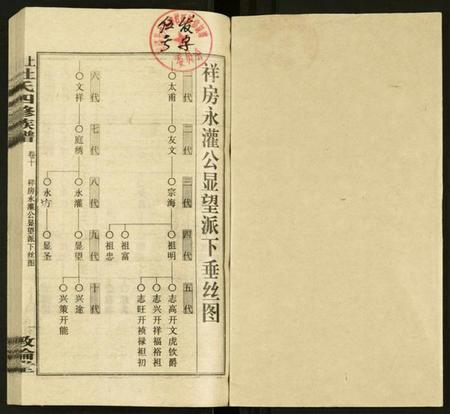 祥房永灌公显望派下垂丝图
一代
太甫
二代
友文
三代
宗海
四代
祖明
祖富
祖忠
五代
志高开文虎钦爵
志兴开祥福裕祖
志旺开祯禄祖初
六代
文祥
七代
庭绣
八代
永灌
永方
九代
显望
显圣
十代
兴途
兴策开能
杜氏四修族谱
卷十
祥房永灌公显望派下丝图